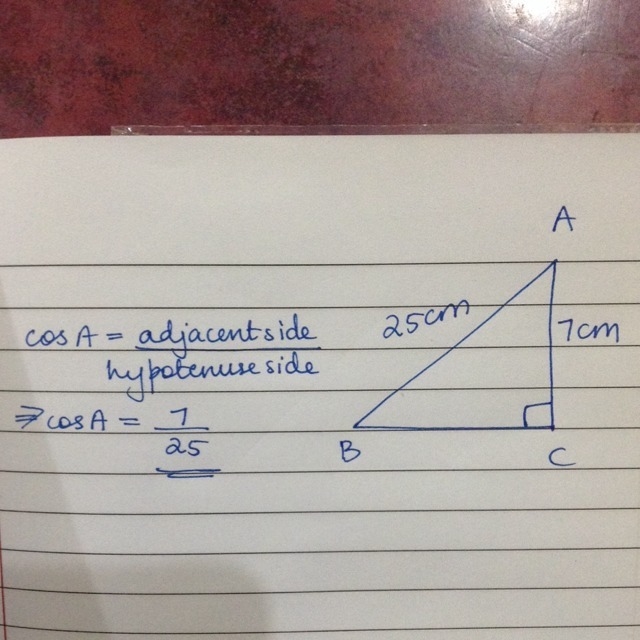 A
25cm
7cm
B
C
cos A = adjacent side
hypotenuse side
⇒ cos A = 7
25